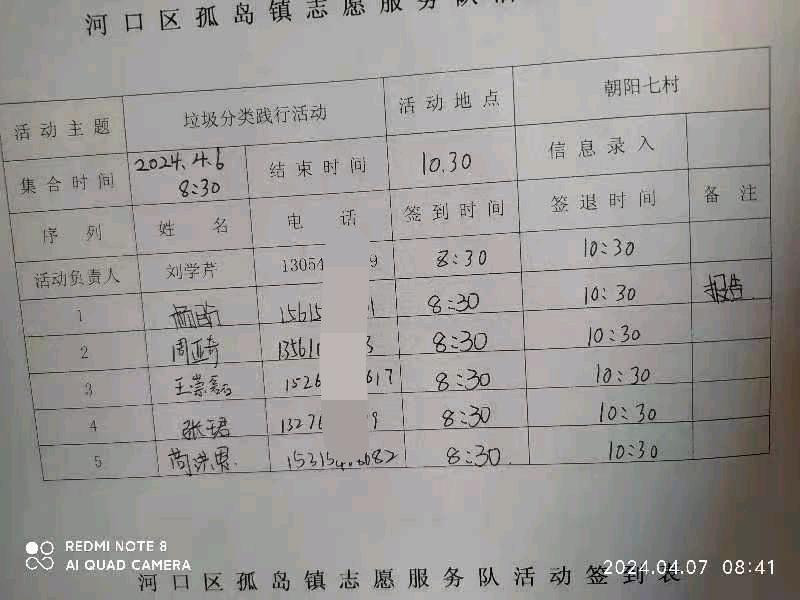 河口区孤岛镇志愿服务队活
活动主题 垃圾分类践行活动 活动地点 朝阳七村
集合时间 2024.4.6 8:30 结束时间 10.30 信息录入
序列 姓名 电话 签到时间 签退时间 备注
活动负责人 刘学芹 13054 9 8:30 10:30
1 15615 1 8:30 10:30 报告
2 周亚奇 13561 3 8:30 10:30
3 王崇磊 1526 617 8:30 10:30
4 张珺 1327 9 8:30 10:30
5 15315 682 8:30. 10:30
REDMI NOTE 8
AI QUAD CAMERA
2024.04.07 08:41
河口区孤岛镇志愿服务队活动签到表